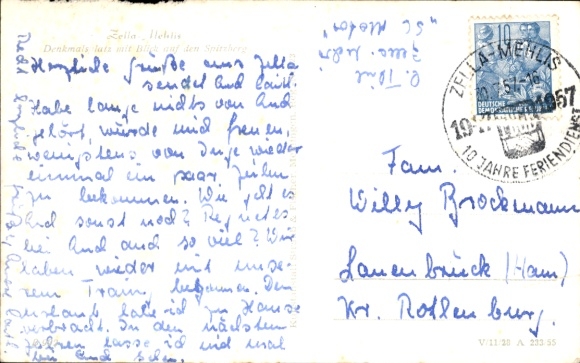 Zella-Mehlis
Denkmalplatz mit Blick auf den Spitzberg
Herzliche Grüße aus Zella
sendet Euch Edith.
Habe lange nichts von Euch
gehört, würde mich freuen,
wenigstens von Inge wieder
einmal ein paar Zeilen
zu bekommen. Wie geht es
Euch sonst noch? Regnet es
bei Euch auch so viel? Wir
haben wieder mit unse-
rem Train, bekommen. Den
Urlaub habe ich zu Hause
verbracht. In den nächsten
Jahren lasse ich mich mal
bei Euch sehen.
Recht herzliche
Zella-Mehlis
ZELLA-MEHLIS
57-16
1957
10 JAHRE FERIENDIENST
10
DEUTSCHE
DEMOKRATISCHE
Fam.
Willy Brockmann
Lauenbrück (Han)
Kr. Rotenburg.
V/11/28 A 233/55